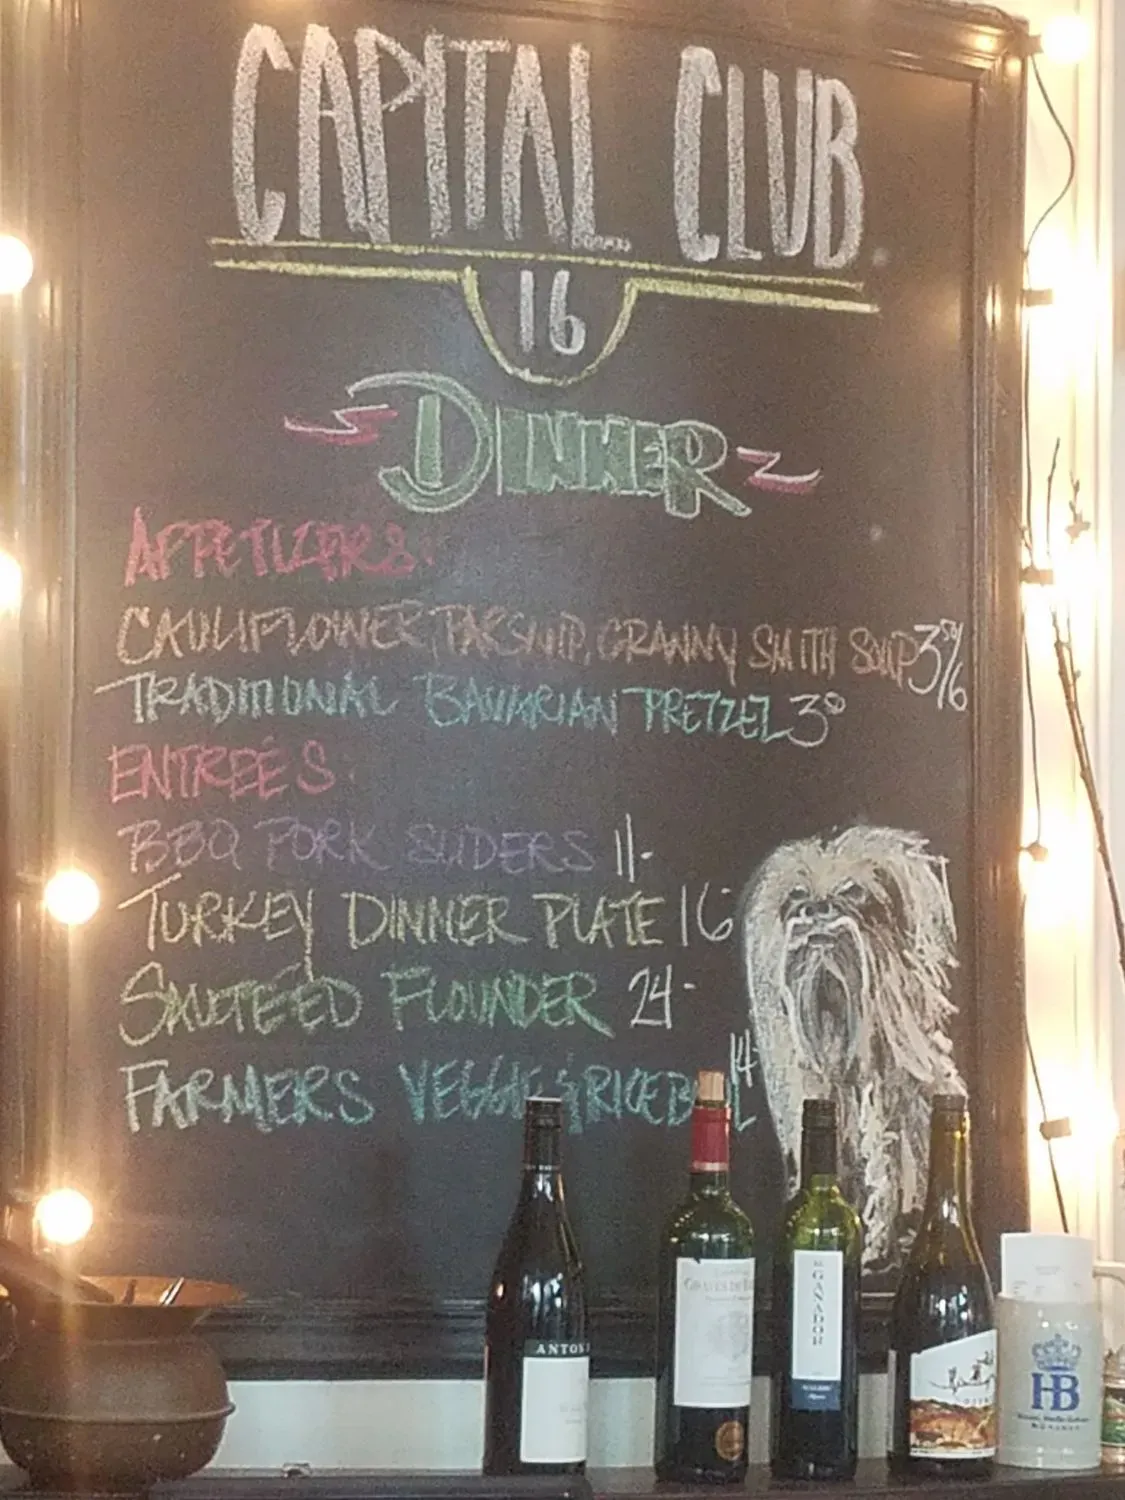 CAPITAL CLUB
16
DINNER
APPETIZERS:
CAULIFLOWER, PARSNIP, GRANNY SMITH SOUP 3⁵⁰/6
TRADITIONAL BAVARIAN PRETZEL 3⁰
ENTREÉS
BBQ PORK SLIDERS 11-
TURKEY DINNER PLATE 16-
SAUTEÉD FLOUNDER 24-
14-
FARMERS VEGGIE & RICE
ANTON
GRAVES DE
GANADOR
MALBEC
HB